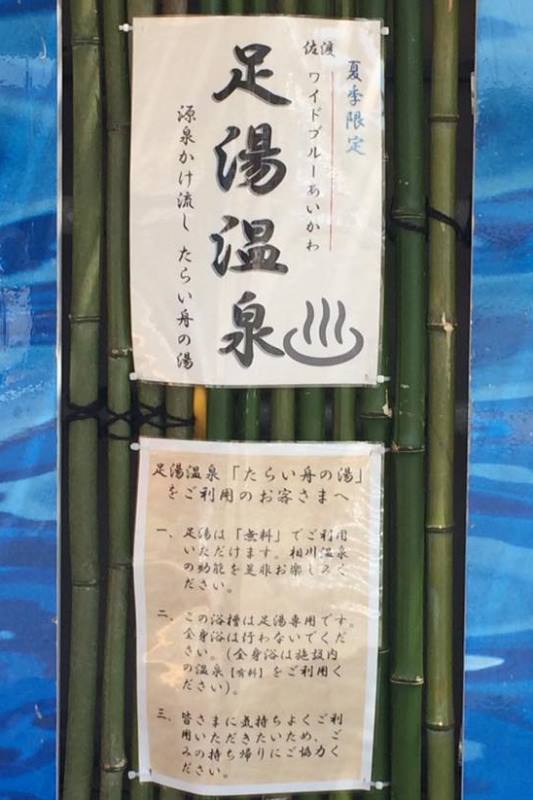 夏季限定
佐渡
ワイドブルーあいかわ
足湯温泉
源泉かけ流し たらい舟の湯
足湯温泉「たらい舟の湯」
をご利用のお客さまへ
一、足湯は「無料」でご利用
いただけます。相川温泉
の効能を是非お楽しみく
ださい。
二、この浴槽は足湯専用です。
全身浴は行わないでくだ
さい。(全身浴は施設内
の温泉【有料】をご利用く
ださい)。
三、皆さまに気持ちよくご利
用いただきたいため、ご
みの持ち帰りにご協力く
ださい。